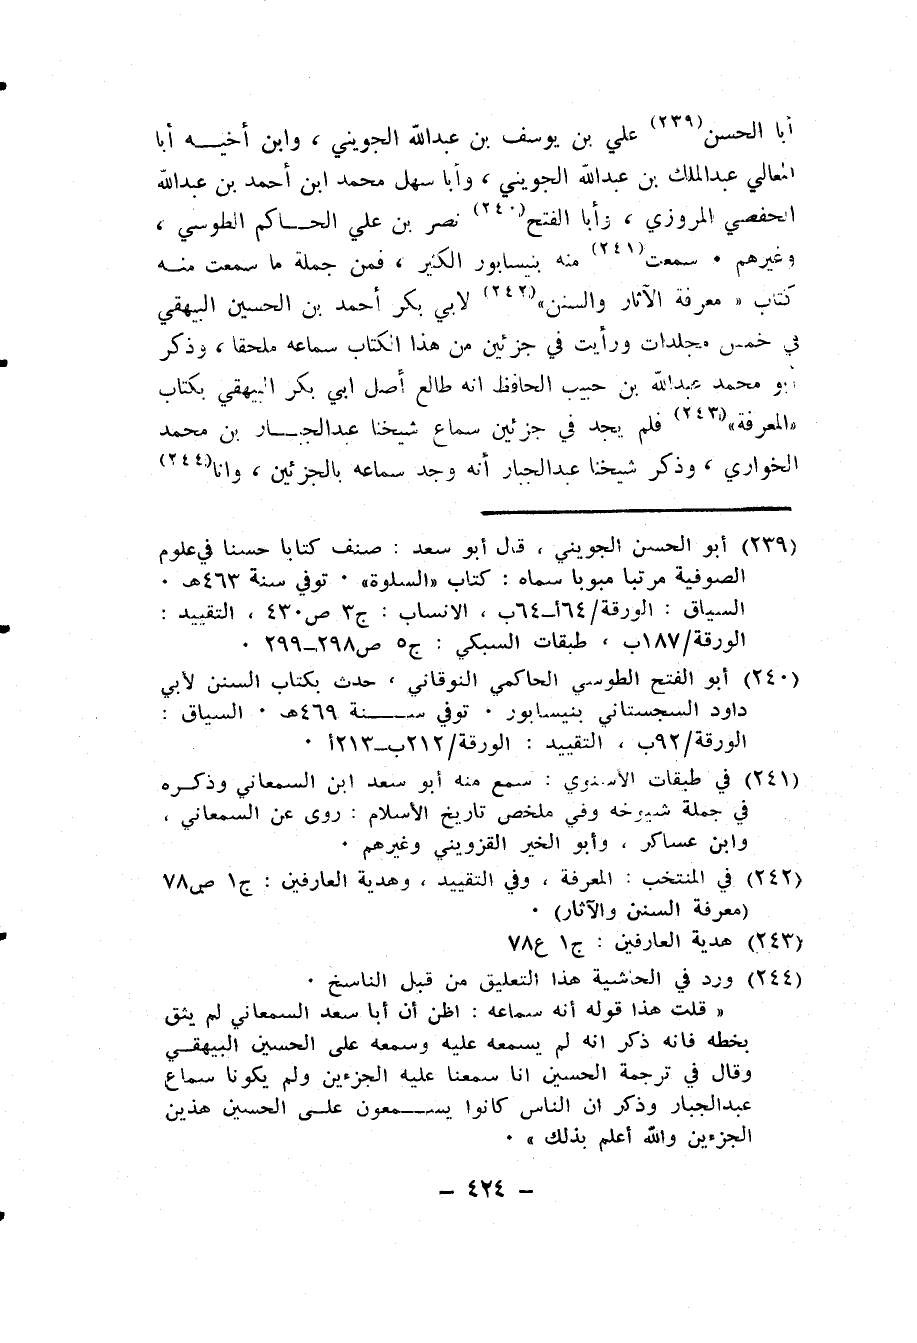 أبا الحسن(٢٣٩) علي بن يوسف بن عبدالله الجويني ، وابن أخيـــه أبا
المعالي عبدالملك بن عبدالله الجويني ، وأبا سهل محمد ابن أحمد بن عبدالله
الحفصي المروزي ، وأبا الفتح(٢٤٠) نصر بن علي الحـــاكم الطوسي ،
وغيرهم . سمعت(٢٤١) منه بنيسابور الكثير ، فمن جملة ما سمعت منـــه
كتاب « معرفة الآثار والسنن»(٢٤٢) لابي بكر أحمد بن الحسين البيهقي
في خمس مجلدات ورأيت في جزئين من هذا الكتاب سماعه ملحقا ، وذكر
أبو محمد عبدالله بن حبيب الحافظ انه طالع أصل ابي بكر البيهقي بكتاب
«المعرفة»(٢٤٣) فلم يجد في جزئين سماع شيخنا عبدالجبـــار بن محمد
الخواري ، وذكر شيخنا عبدالجبار أنه وجد سماعه بالجزئين ، وانا(٢٤٤)
(٢٣٩) أبو الحسن الجويني ، قال أبو سعد : صنف كتابا حسنا في علوم
الصوفية مرتبا مبوبا سماه : كتاب «السلوة» . توفي سنة ٤٦٣هـ .
السياق : الورقة/٦٤أ–٦٤ب ، الانساب : ج٣ ص٤٣٠ ، التقييد :
الورقة/١٨٧ب ، طبقات السبكي : ج٥ ص٢٩٨–٢٩٩ .
(٢٤٠) أبو الفتح الطوسي الحاكمي النوقاني ، حدث بكتاب السنن لأبي
داود السجستاني بنيسابور . توفي ســـنة ٤٦٩هـ . السياق :
الورقة/٩٢ب ، التقييد : الورقة/٢١٢ب–٢١٣أ .
(٢٤١) في طبقات الأسنوي : سمع منه أبو سعد ابن السمعاني وذكـره
في جملة شيوخه وفي ملخص تاريخ الأسلام : روى عن السمعاني ،
وابن عساكر ، وأبو الخير القزويني وغيرهم .
(٢٤٢) في المنتخب : المعرفة ، وفي التقييد ، وهدية العارفين : ج١ ص٧٨
(معرفة السنن والآثار) .
(٢٤٣) هدية العارفين : ج١ ع٧٨
(٢٤٤) ورد في الحاشية هذا التعليق من قبل الناسخ .
« قلت هذا قوله أنه سماعه : اظن أن أبا سعد السمعاني لم يثق
بخطه فانه ذكر انه لم يسمعه عليه وسمعه على الحسين البيهقـي
وقال في ترجمة الحسين انا سمعنا عليه الجزءين ولم يكونا سماع
عبدالجبار وذكر ان الناس كانوا يســـمعون علـى الحسين هذين
الجزءين والله أعلم بذلك » .
– ٤٢٤ –